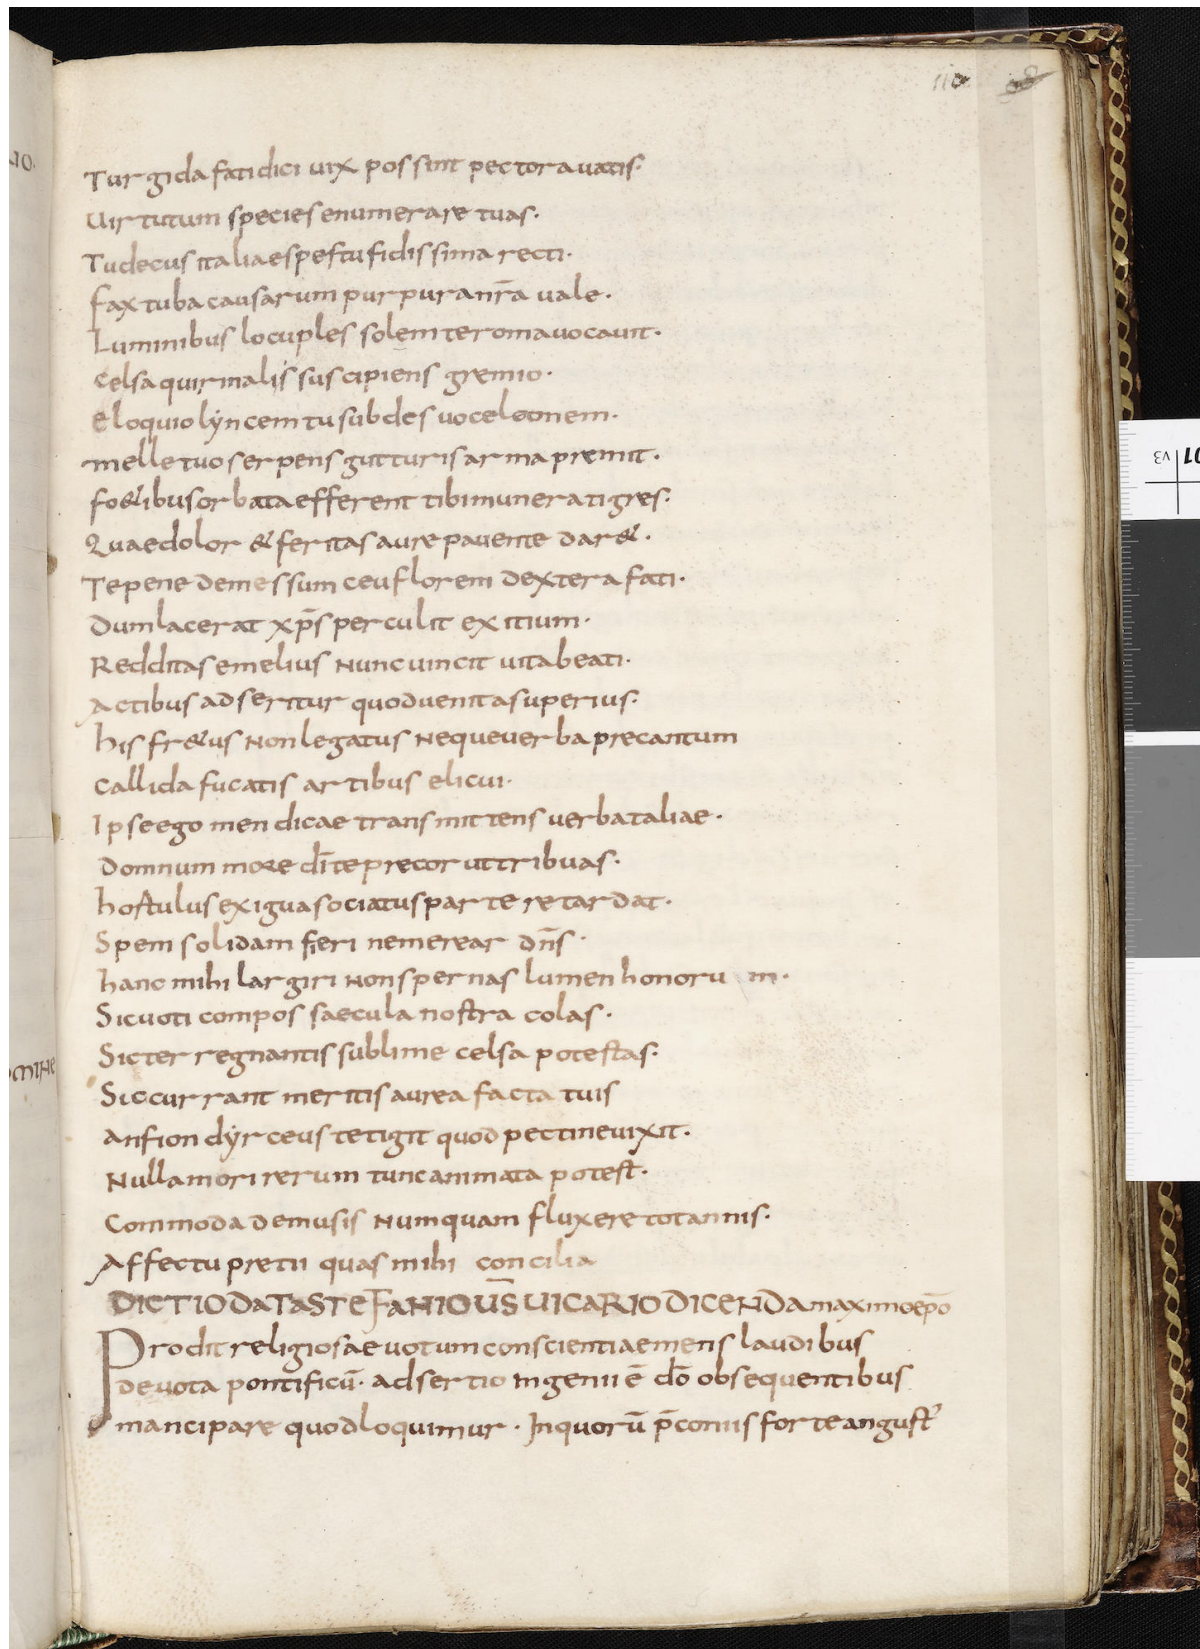 110
Turgida fatidici uix possint pectora uatis·
Uirtutum species enumerare tuas·
Tu decus italiae spes tu fidissima recti·
Fax tuba causarum purpura nr̄a uale·
Luminibus locuples solem te roma uocauit·
Celsa quirinalis suscipiens gremio·
Eloquio lẏncem tu subdes uoce leonem·
melle tuo serpens gutturis arma premit·
fo&ibus orbata efferent tibi munera tigres·
Quae dolor & feritas aure pauente dar&·
Te pene demessum ceu florem dextera fati·
Dum lacerat xp̄s perculit exitium·
Reddita semelius Nunc uincit uita beati·
Actibus adseritur quod uenit a superius·
his fr&us Non legatus Neque uerba precantum
callida fucatis artibus elicui·
Ipse ego mendicae transmittens uerba taliae·
Domnum more dī te precor ut tribuas·
hostulus exigua sociatus parte retardat·
Spem solidam fieri nemerear dn̄s·
hanc mihi largiri Non spernas lumen honoru m·
Sic uoti compos saecula nostra colas·
Sic ter regnantis sublime celsa potestas·
Sic currant meritis aurea facta tuis
anfion dẏrceus tetigit quod pectine uixit·
Nulla mori rerum tunc animata potest·
Commoda de musis Numquam fluxere tot annis·
Affectu pretii quas mihi concilia
DICTIO DATA STEFANIO Ū̄S UICARIO DICENDA maximo ep̄o
Prodit religiosae uotum conscientiae mens laudibus
deuota pontificū· adsertio ingenii ē dō obsequentibus
mancipare quod loquimur· In quorū p̄coniis forte angust'